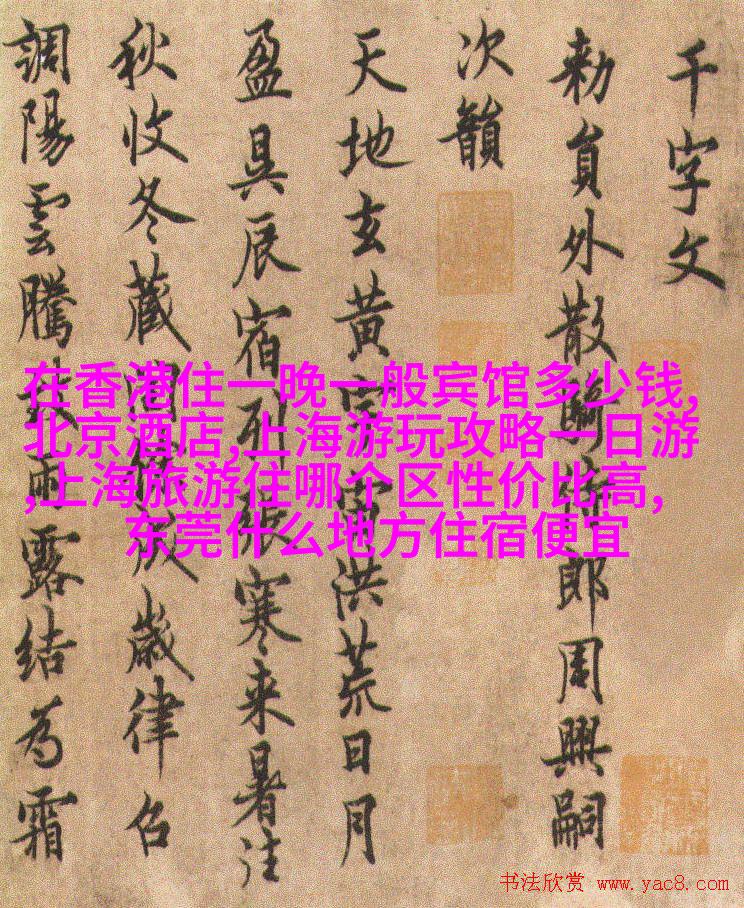 千字文
勑員外散騎郎周興嗣
次韻
天地玄黃宇宙洪荒日月
盈昃辰宿列張寒来暑往
秋收冬藏閏成歲律召
調陽雲騰雨露結為霜
在香港住一晚一般宾馆多少钱,
北京酒店,上海游玩攻略一日游
,上海旅游住哪个区性价比高,
东莞什么地方住宿便宜
书法欣赏 www.yac8.com